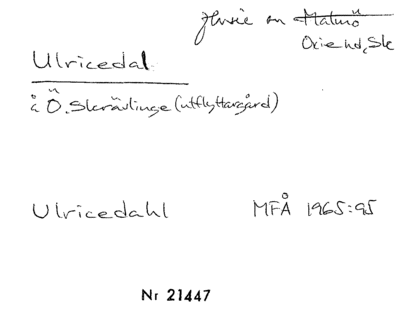 Husie sn Malmö
Oxie hd, Sk
Ulricedal
å Ö. Skrävlinge (utflyttargård)
Ulricedahl MFÅ 1965:95
Nr 21447